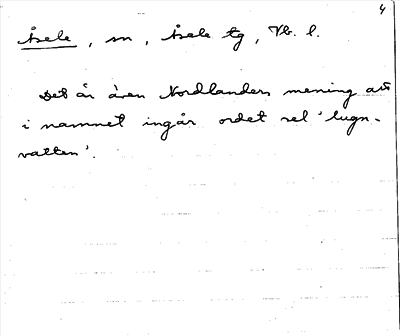 4
Åsele, sn, Åsele tg, Vb. l.
Det är även Nordlanders mening att
i namnet ingår ordet sel 'lugn-
vatten'.